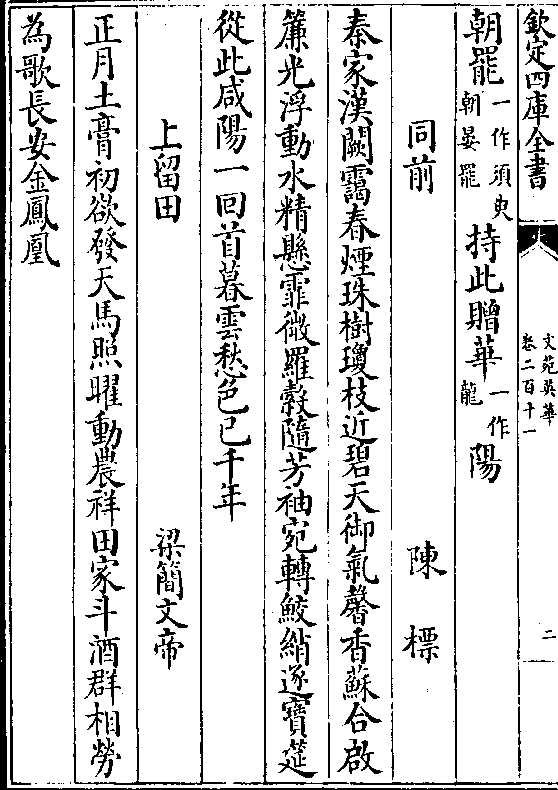 欽定四庫全書
文苑英華
卷二百十一
二
朝罷一作須臾朝晏罷持此贈華一作龍陽
同前 陳標
秦家漢闕靄春煙珠樹瓊枝近碧天御氣馨香蘇合啟
簾光浮動水精懸霏微羅縠隨芳袖宛轉鮫綃逐寶筵
從此咸陽一回首暮雲愁色已千年
上留田 梁簡文帝
正月土膏初欲發天馬照曜動農祥田家斗酒群相勞
為歌長安金鳳凰